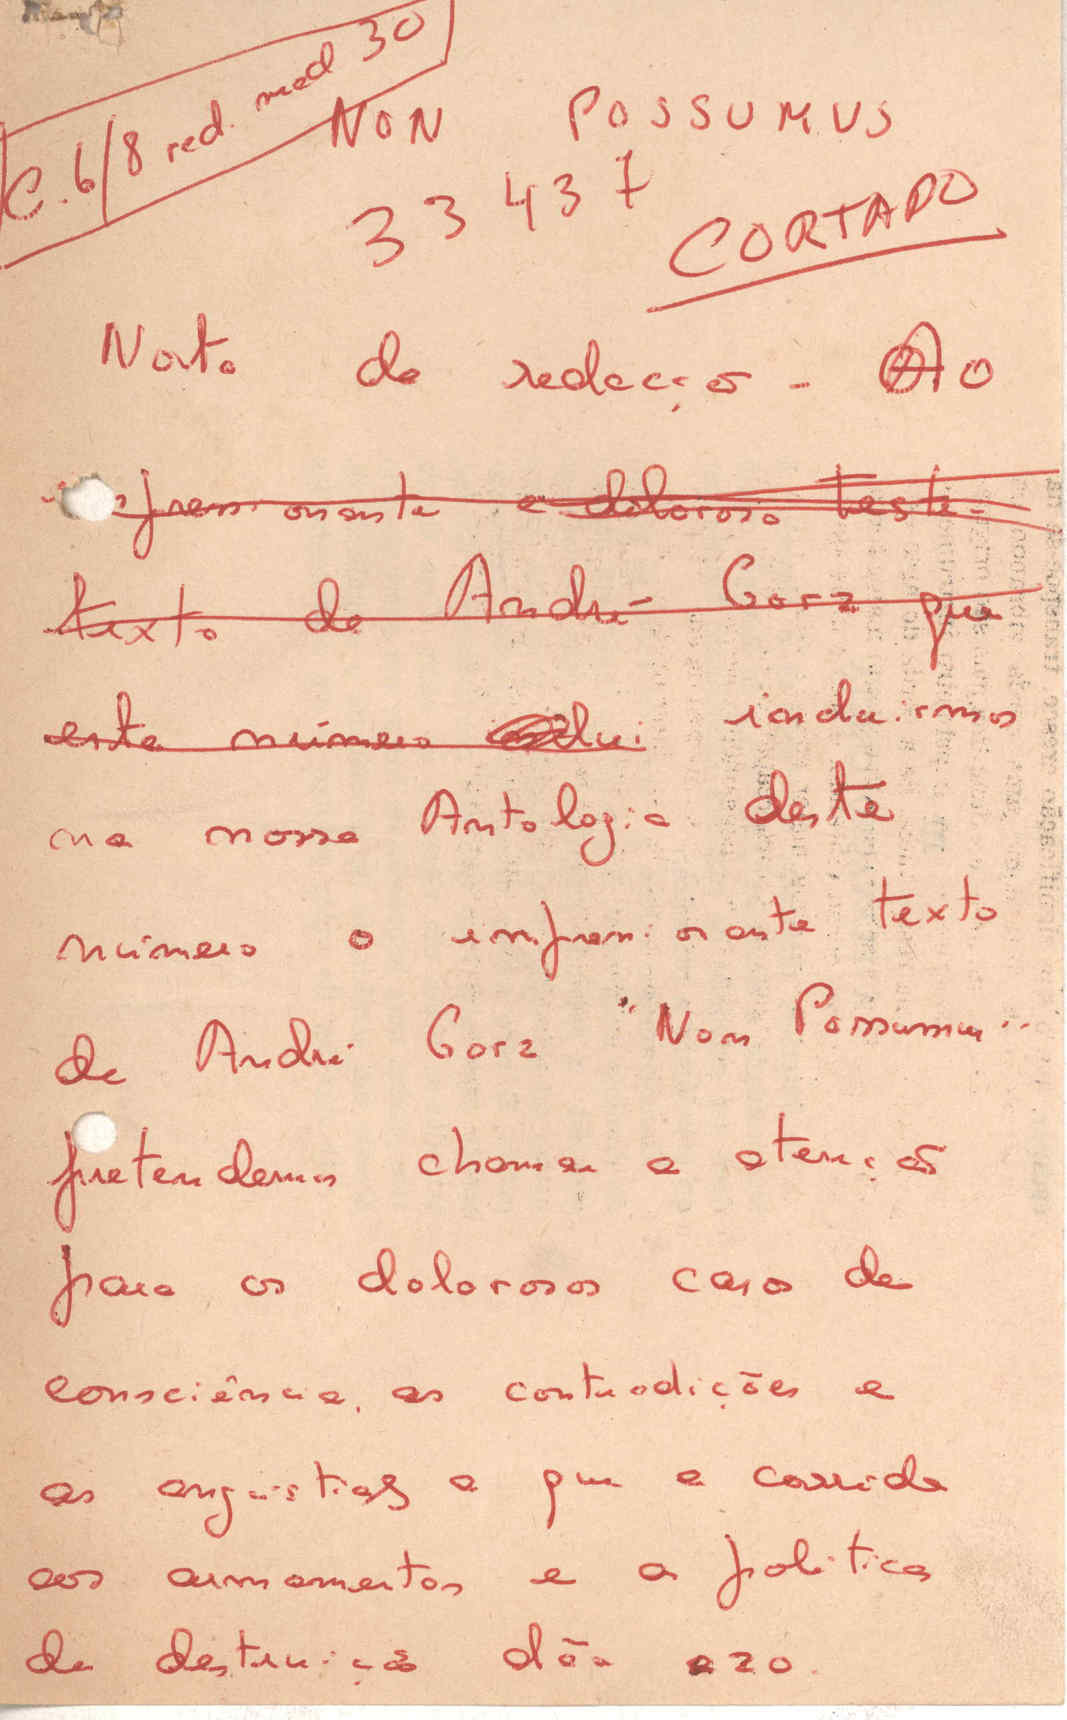 C. 6/8 red. med 30
NON POSSUMUS
33437
CORTADO
Nota da redacção - Ao
impressionante e doloroso teste-
texto de André Gorz que
este número
incluirmos
na nossa Antologia deste
número o impressionante texto
de André Gorz "Non Possumus"
pretendemos chamar a atenção
para os dolorosos casos de
consciência, as contradições e
as angústias a que a corrida
aos armamentos e a política
de destruição dão azo.